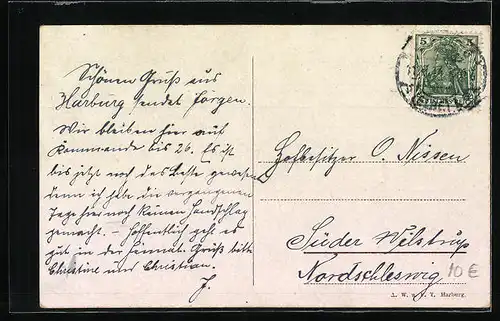 Schönen Gruß aus
Harburg sendet Jörgen.
Wir bleiben hier mit
Kommando bis 26. Es ist
bis jetzt noch das Beste gewesen
denn ich habe die vergangenen
Tage hier noch keinen Handschlag
gemacht. – Hoffentlich geht es
gut in der Heimat. Grüß bitte
Christine und Christian.
J.
5
Hofbesitzer O. Nissen
Süder Wilstrup
Nordschleswig
10 €
Harburg.